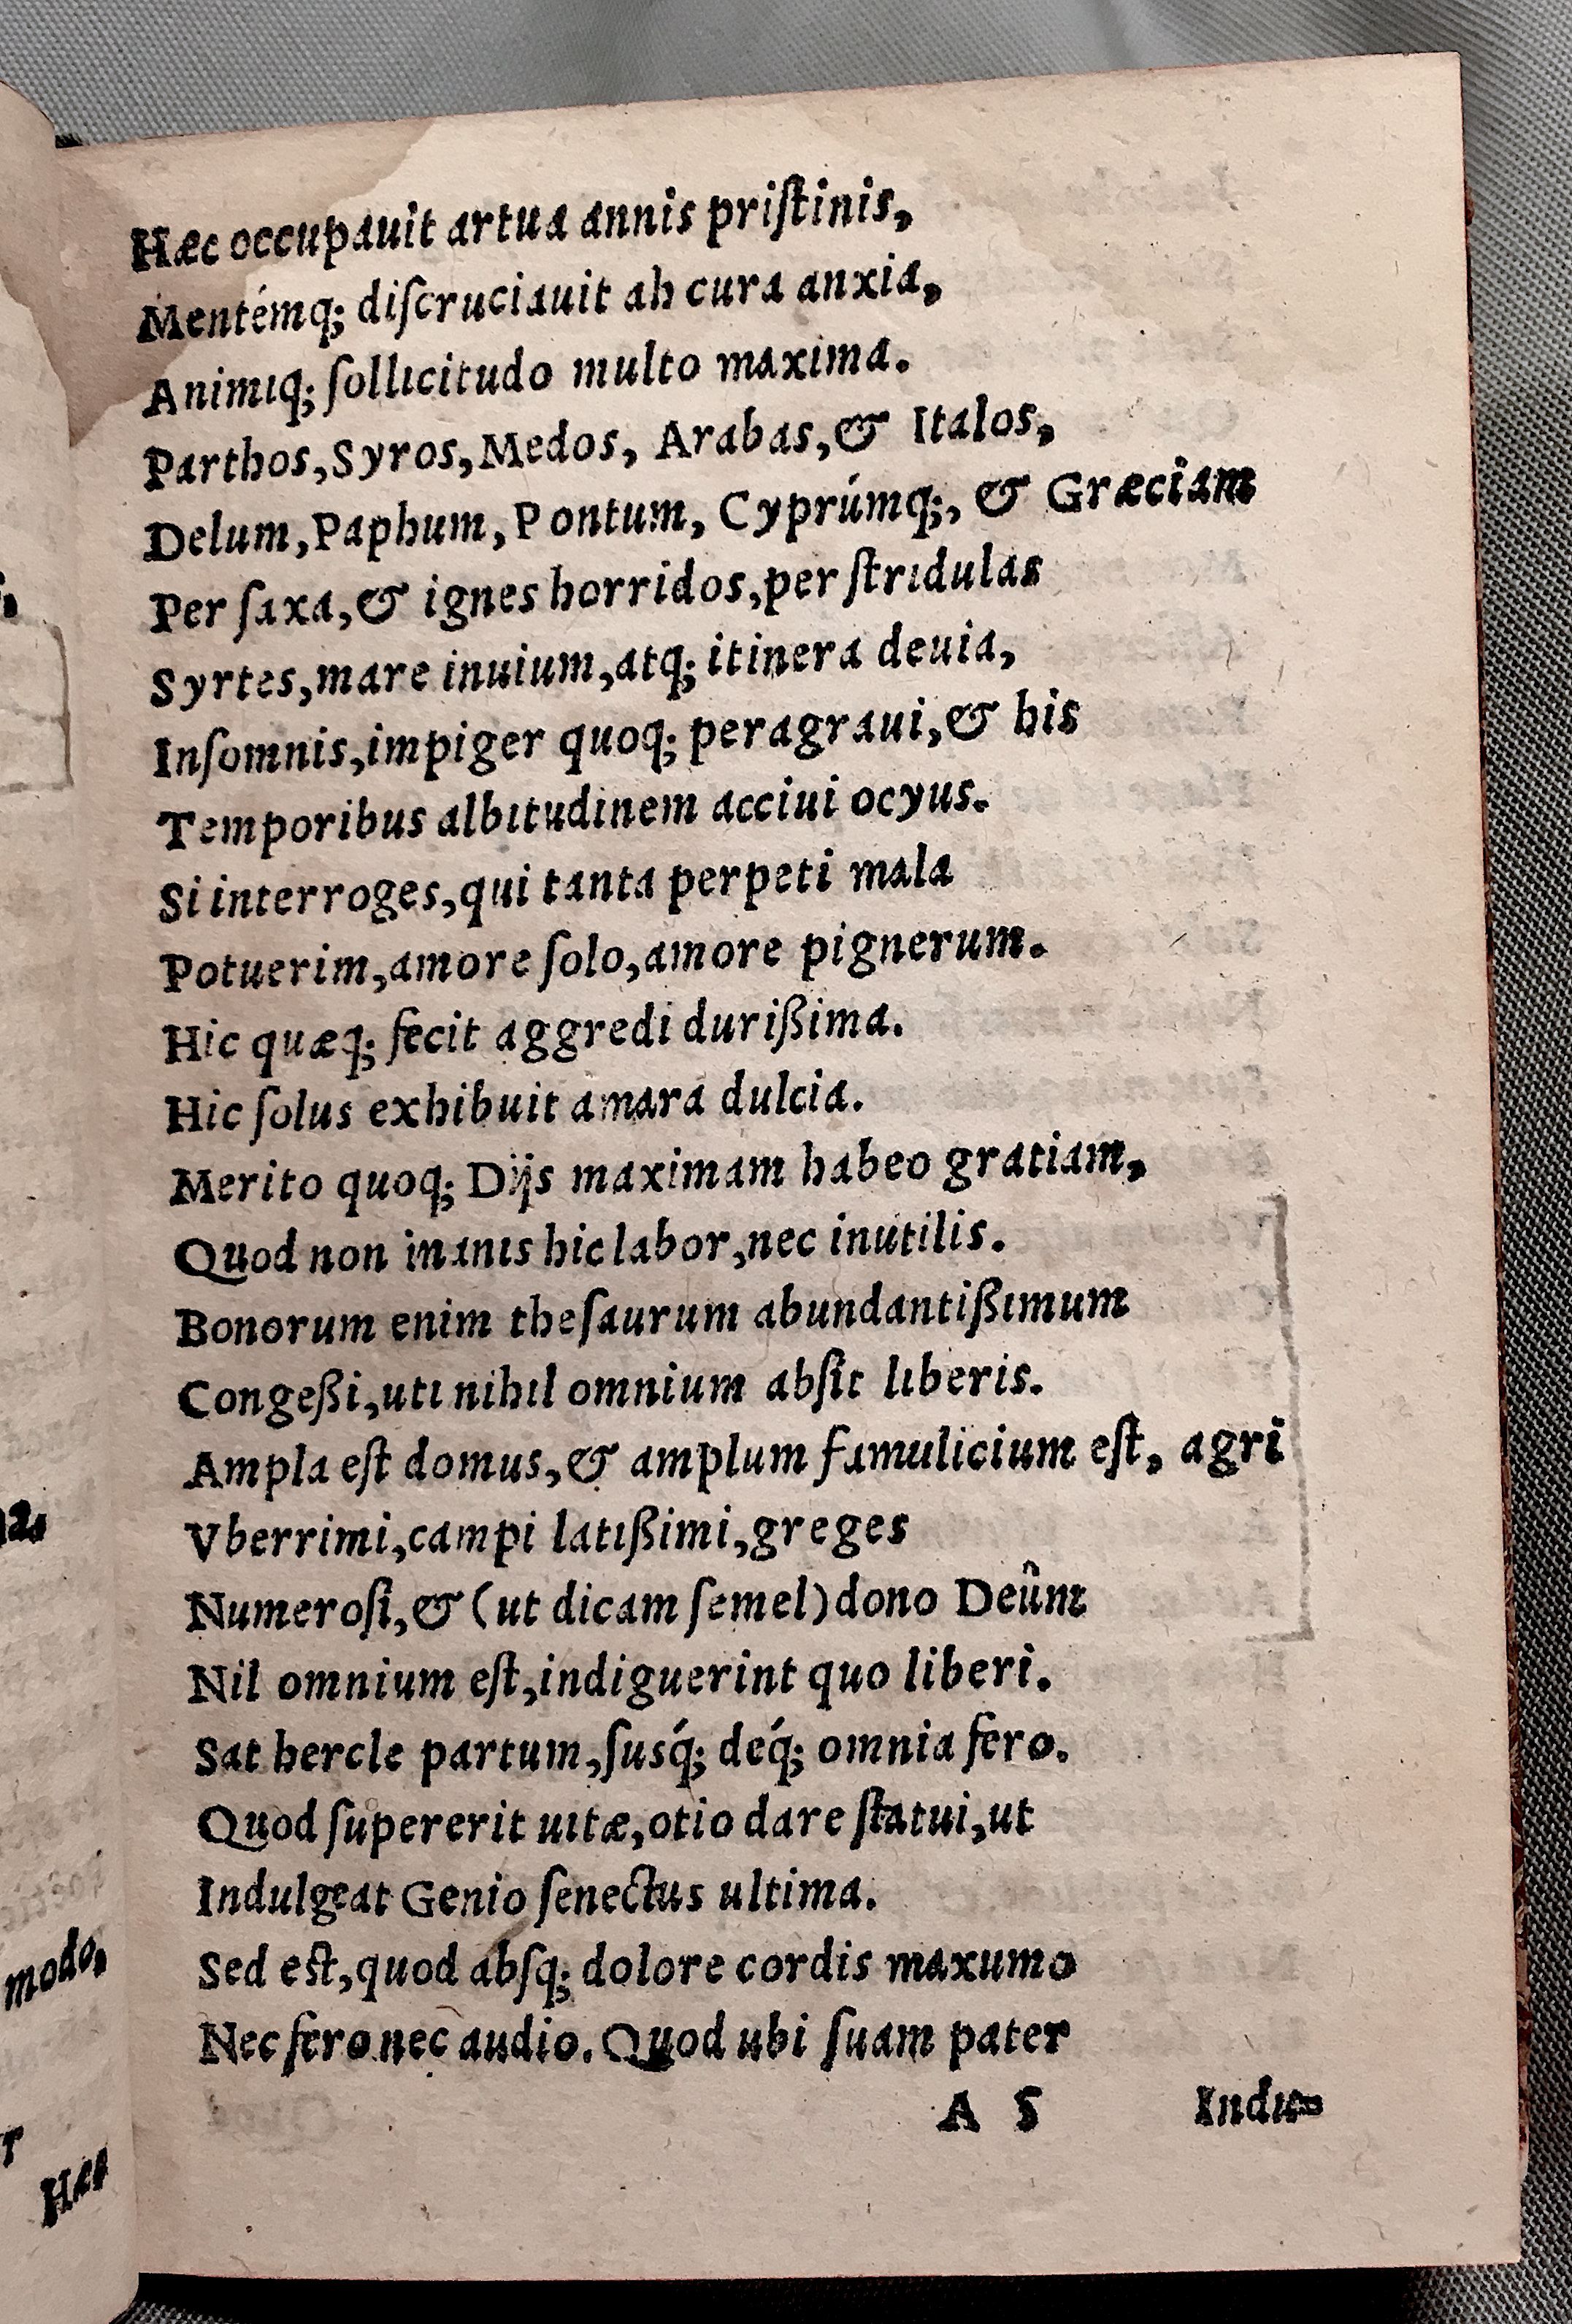 Hæc occupauit artua annis priſtinis,
Mentémq; diſcruciauit ah cura anxia,
Animiq; ſollicitudo multo maxima.
Parthos, Syros, Medos, Arabas, & Italos,
Delum, Paphum, Pontum, Cyprúmq;, & Græciam
Per ſaxa, & ignes horridos, per ſtridulas
Syrtes, mare inuium, atq; itinera deuia,
Inſomnis, impiger quoq; peragraui, & his
Temporibus albitudinem acciui ocyus.
Si interroges, qui tanta perpeti mala
Potuerim, amore ſolo, amore pignerum.
Hic quæq; fecit aggredi durißima.
Hic ſolus exhibuit amara dulcia.
Merito quoq; Dijs maximam habeo gratiam,
Quod non inanis hic labor, nec inutilis.
Bonorum enim theſaurum abundantißimum
Congeßi, uti nihil omnium abſit liberis.
Ampla eſt domus, & amplum famulicium eſt, agri
Vberrimi, campi latißimi, greges
Numeroſi, & (ut dicam ſemel) dono Deûm
Nil omnium eſt, indiguerint quo liberi.
Sat hercle partum, ſusq́; deq́; omnia fero.
Quod ſupererit uitæ, otio dare ſtatui, ut
Indulgeat Genio ſenectus ultima.
Sed eſt, quod abſq; dolore cordis maxumo
Nec fero nec audio. Quod ubi ſuam pater
A 5 Indu-
modo,
Hæc